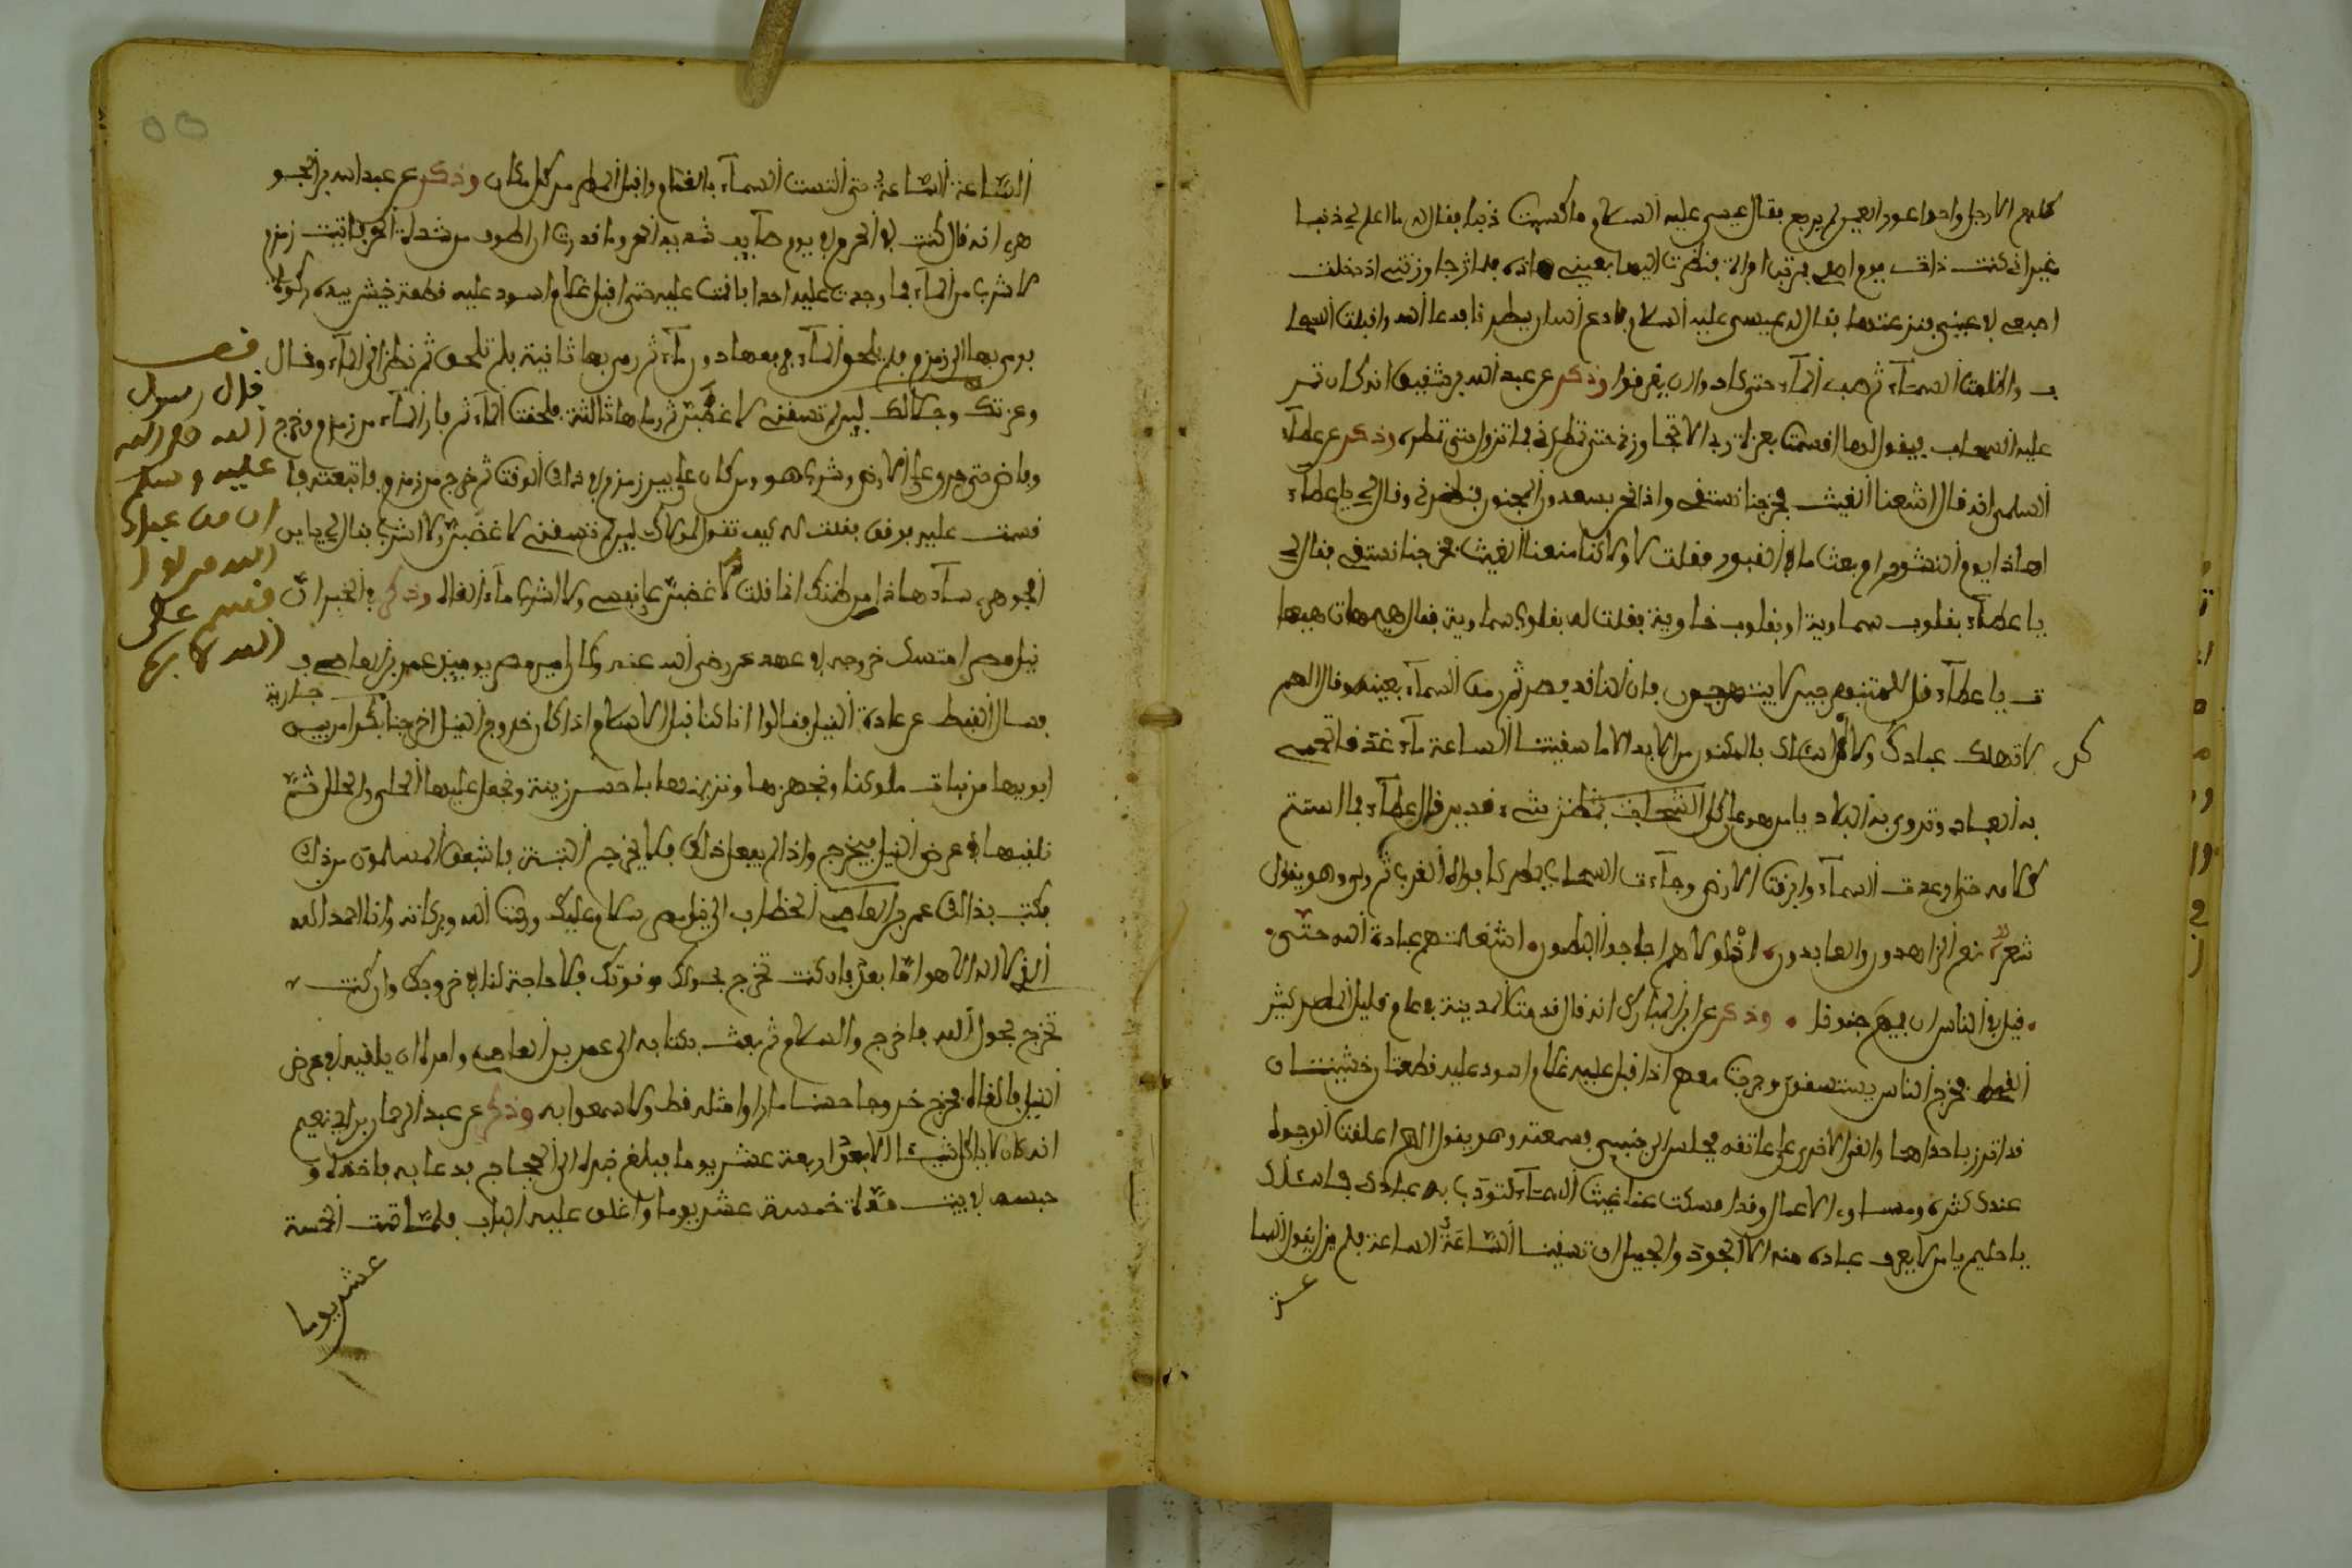 كلهم الا رجل واحد اعور العين لم يرجع فقال عيسى عليه السلام ما اكتسبت ذنبا فقال له ما اعلم لي ذنبا
غير اني كنت ذات يوم اصلي فمرت امراة فنظرت اليها بعيني هاذه فلما ان جاوزتني ادخلت
اصبعي في عيني فنزعتها فقال له عيسى عليه السلام فادع لنا ربك فدعا الله واقبلت السحا
ب واظلمت السماء ثم صب الماء حتى كادوا ان يغرقوا وذكر عن عبد الله بن شقيق انه كان تمر
عليه السحاب فيقول لها اقسمت بعزة ربك الا تجاوزني حتى تمطري فما تزول حتى تمطره وذكر عن عطاء
السلمي انه قال منعنا الغيث فخرجنا نستسقي واذا نحن بسعدون المجنون فنظرني وقال لي يا عطاء
اهاذا يوم النشور او بعث ما في القبور فقلت لا ولاكنا منعنا الغيث فخرجنا نستسقي فقال لي
يا عطاء بقلوب سماوية او بقلوب خاوية فقلت له بقلوب سماوية فقال هيهات هيها
ت يا عطاء قل للمتبهرجين لا يتبهرجون فان الناقد بصير ثم رمق السماء بعينه وقال الهم
لا تهلك عبادك ولاكن اسالك بالمكنون من الايد الا ما سقيتنا الساعة ماء غدقا تحيي
به العباد وتروي به البلاد يا من هو على كل شيء قدير قال عطاء فما استتم
كلامه حتى ارعدت السماء وابرقت الارض وجاءت السماء بمطر كافواه القرب ثم ولى وهو يقول
شعر نعم الزاهدون والعابدون اذ لمولاهم اجاعوا البطون اشغلتهم عبادة الله حتى
قيل في الناس ان فيهم جنونا وذكر عن ابن المبارك انه قال قدمت المدينة في عام قليل المطر كثير
القحط فخرج الناس يستسقون وخرجت معهم اذ اقبل عليه غلام اسود عليه قطعتان خشينتان
قد اتزر باحداهما والقى الاخرى على عاتقه فجلس الى جنبي فسمعته وهو يقول الهم اخلقت الوجوه
عندك كثرة ومساوي الاعمال وقد امسكت عنا غيث السماء لتؤدب به عبادك فاسئلك
يا حليم يا من لا يعرف عباده منه الا الجود والجميل ان تسقينا الساعة الساعة فلم يزل يقول السا
عة
الساعة الساعة حتى التست السماء بالغمام واقبل المطر من كل مكان وذكر عن عبد الله بن الجو
هري انه قال كنت في الحرم في يوم صايف شديد الحر وما قدرت ان اطوف من شدة الحر فاتيت زمزم
لاشرب من الماء فما وجدت عليه احدا فاقمت عليه حتى اقبل غلام اسود عليه قطعة خيش بيده ركوة
فرمى بها الى زمزم فلم تلحق الماء فرفعها دون ماء ثم رمى بها ثانية فلم تلحق ثم نظر الى الماء وقال
وعزتك وجلالك لين لم تسقني لاغضبن ثم رماها ثالثة فلحقت الماء ثم فار الماء من زمزم وخرج
وفاض حتى جرى على الارض وشرب هو ومن كان على بير زمزم في ذاك الوقت ثم خرج من زمزم فاتبعته فا
قسمت عليه فوقف فقلت له كيف تقول لمولاك لين لم تسقني لاغضبن ولا اشرب فقال لي يا بن
الجوهري ساء هاذا من ظنك انما قلت لاغضبن على نفسي ولا اشرب ماء القال وذكر في الخبر ان
نيل مصر امتسك خروجه في عهد عمر رضي الله عنه وكان امير مصر يوميذ عمر بن العاصي ف
فسال القبط عن عادة النيل فقالوا انا كنا قبل الاسلام اذا كان خروج النيل اخرجنا بكرا من بين
جارية
ابويها من بنات ملوكنا ونجهزها ونزينها باحسن زينة ونجعل عليها الحلي والحلل ثم
نلقيها في عرض النيل فيخرج واذا لم يفعل ذلك فلا يخرج البتة فاشفق المسلمون من ذلك
فكتب بذالك عمر بن العاصي الخطاب الى نيل مصر سلام عليك ورحمت الله وبركاته وانا احمد الله
الذي لا اله الا هو اما بعد فان كنت تخرج بحولك وقوتك فلا حاجة لنا في خروجك وان كنت
تخرج بحول الله فاخرج والسلام ثم بعث بكتابه الى عمر بن العاصي وامره ان يلقيه في عرض
النيل فالقاه فخرج خروجا حسنا ما راوا مثله قط ولا سمعوا به وذكر عن عبد الرحمان بن ابي نعيم
انه كان لا ياكل شيئا الا بعد اربعة عشر يوما فبلغ خبره الى الحجاج فدعا به فاخذه و
حبسه في بيت مدة خمسة عشر يوما واغلق عليه الباب فلما تمت الخمسة
عشر يوما
قف
قال رسول
الله صلى الله
عليه وسلم
ان من عباد
الله من لو ا
قسم على
الله لابره